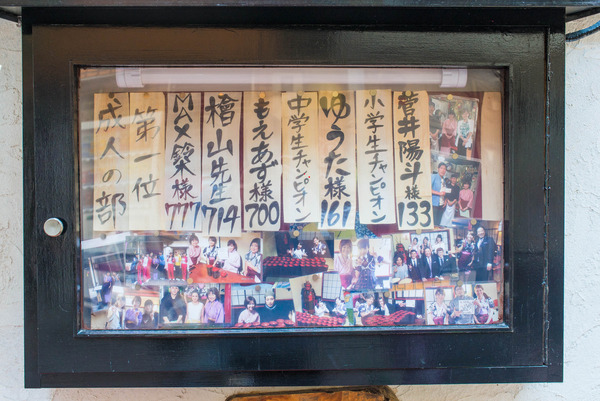 成人の部
第一位
MAX鈴木様777
檜山先生714
もえあず様700
中学生チャンピオン
ゆうた様161
小学生チャンピオン
菅井陽斗様133